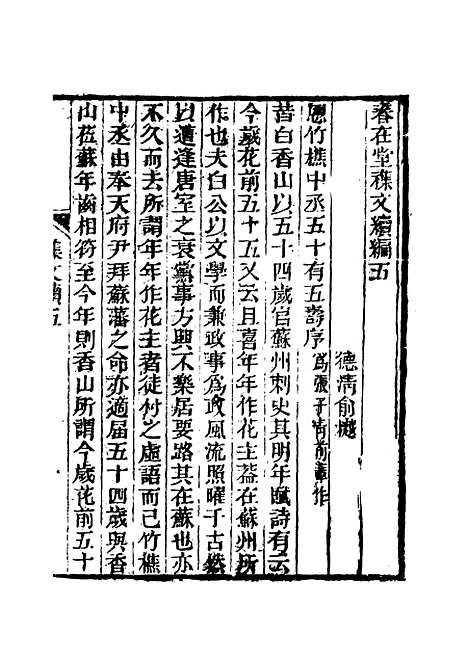 春在堂襍文續編五
德淸俞樾
恩竹樵中丞五十有五壽序爲張子靑前輩作
昔白香山以五十四歲官蘇州刺史其明年賦詩有云
今歲花前五十五又云且喜年年作花主葢在蘇州所
作也夫白公以文學而兼政事爲政風流照曜于古然
以遭逢唐室之衰黨事方興不樂居要路其在蘇也亦
不久而去所謂年年作花主者徒付之虛語而已竹樵
中丞由奉天府尹拜蘇藩之命亦適届五十四歲與香
山莅蘇年齒相符至今年則香山所謂今歲花前五十
襍文續五